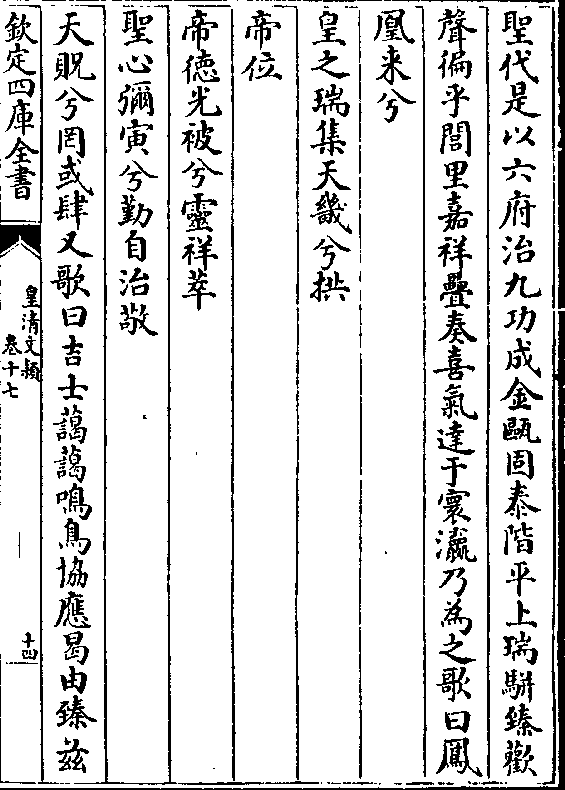 聖代是以六府治九功成金甌固泰階平上瑞駢臻歡
聲徧乎閭里嘉祥疊奏喜氣達于寰瀛乃為之歌曰鳳
凰来兮
皇之瑞集天畿兮拱
帝位
帝徳光被兮靈祥萃
聖心彌寅兮勤自治敬
天貺兮罔或肆又歌曰吉士藹藹鳴鳥協應曷由臻兹
欽定四庫全書
皇清文穎
卷十七
十四